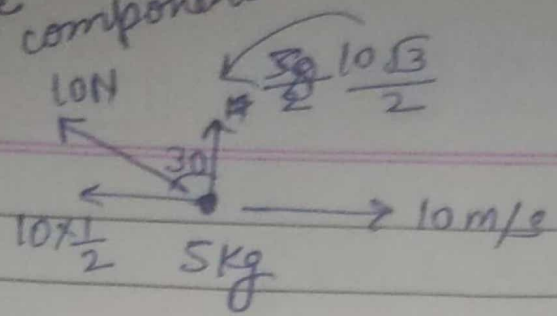 compone
10N
10√3/2
30
10×1/2
5kg
10m/s